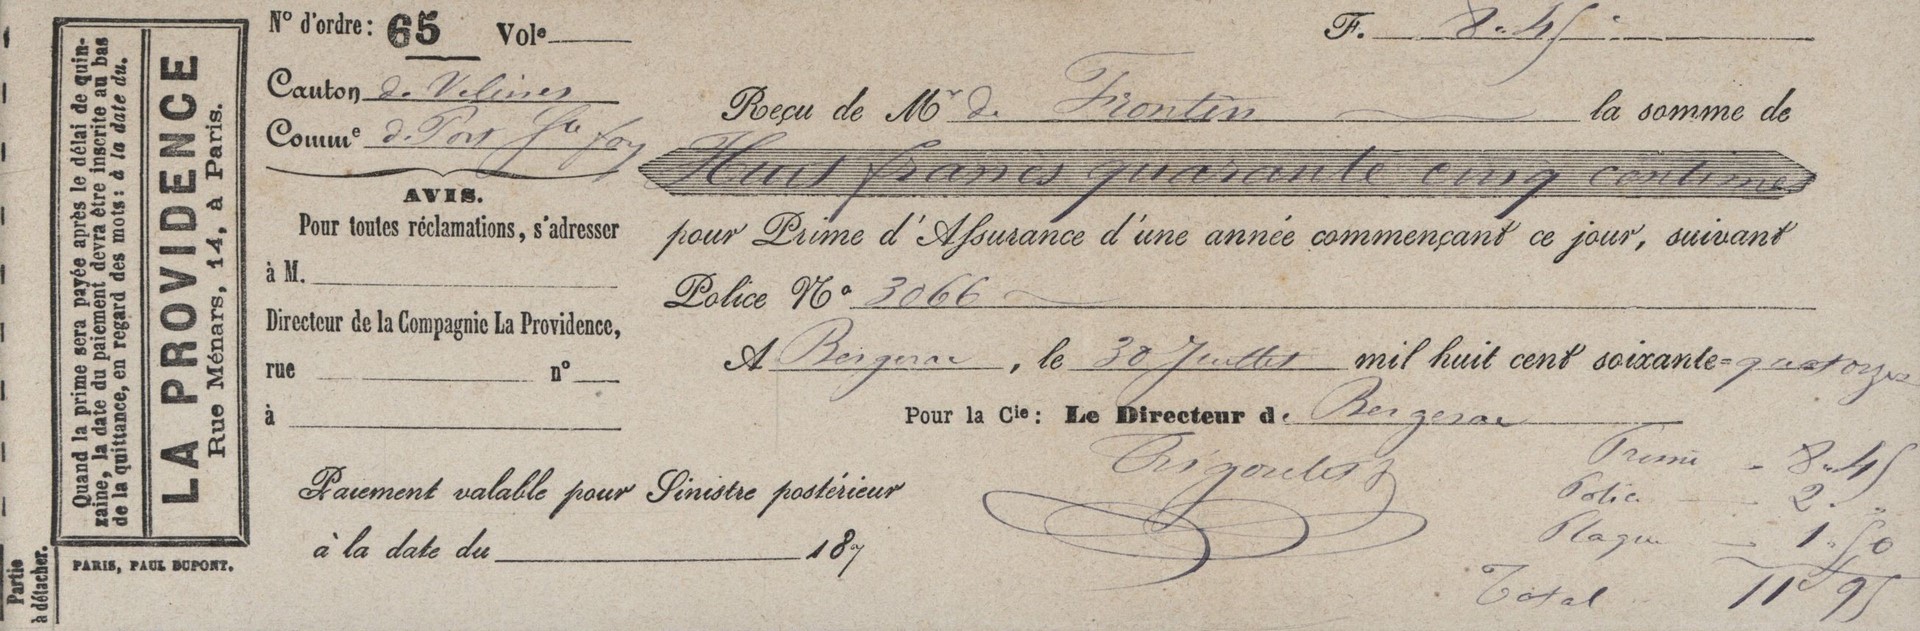 Partie
à détacher.
Quand la prime sera payée après le délai de quin-
zaine, la date du paiement devra être inscrite au bas
de la quittance, en regard des mots : à la date du.
LA PROVIDENCE
Rue Ménars, 14, à Paris.
PARIS, PAUL DUPONT.
N° d'ordre: 65 Vole
Canton de Velines
Comme de Port Ste foy
AVIS.
Pour toutes réclamations, s'adresser
à M.
Directeur de la Compagnie La Providence,
rue n°
à
Paiement valable pour Sinistre postérieur
à la date du 187
F. 8.45
Reçu de Mr de Frontin la somme de
Huit francs quarante cinq centimes
pour Prime d'Assurance d'une année commençant ce jour, suivant
Police No 3066
A Bergerac, le 30 Juillet mil huit cent soixante=quatorze
Pour la Cie: Le Directeur de Bergerac
Prime 8.45
Police 2. "
Plaque 1.50
Total 11 95